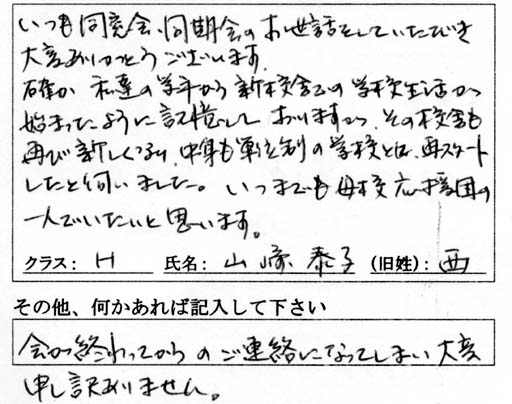 いつも同窓会、同期会のお世話をしていただき
大変ありがとうございます。
確か 私達の学年から新校舎での学校生活が
始まったように記憶して おりますが、その校舎も
再び新しくなり、中身も単位制の学校とし、再スタート
したと伺いました。いつまでも母校応援団の
一人でいたいと思います。
クラス： H 氏名： 山﨑 泰子 (旧姓)： 西
その他、何かあれば記入して下さい
会が終わってからのご連絡になってしまい大変
申し訳ありません。